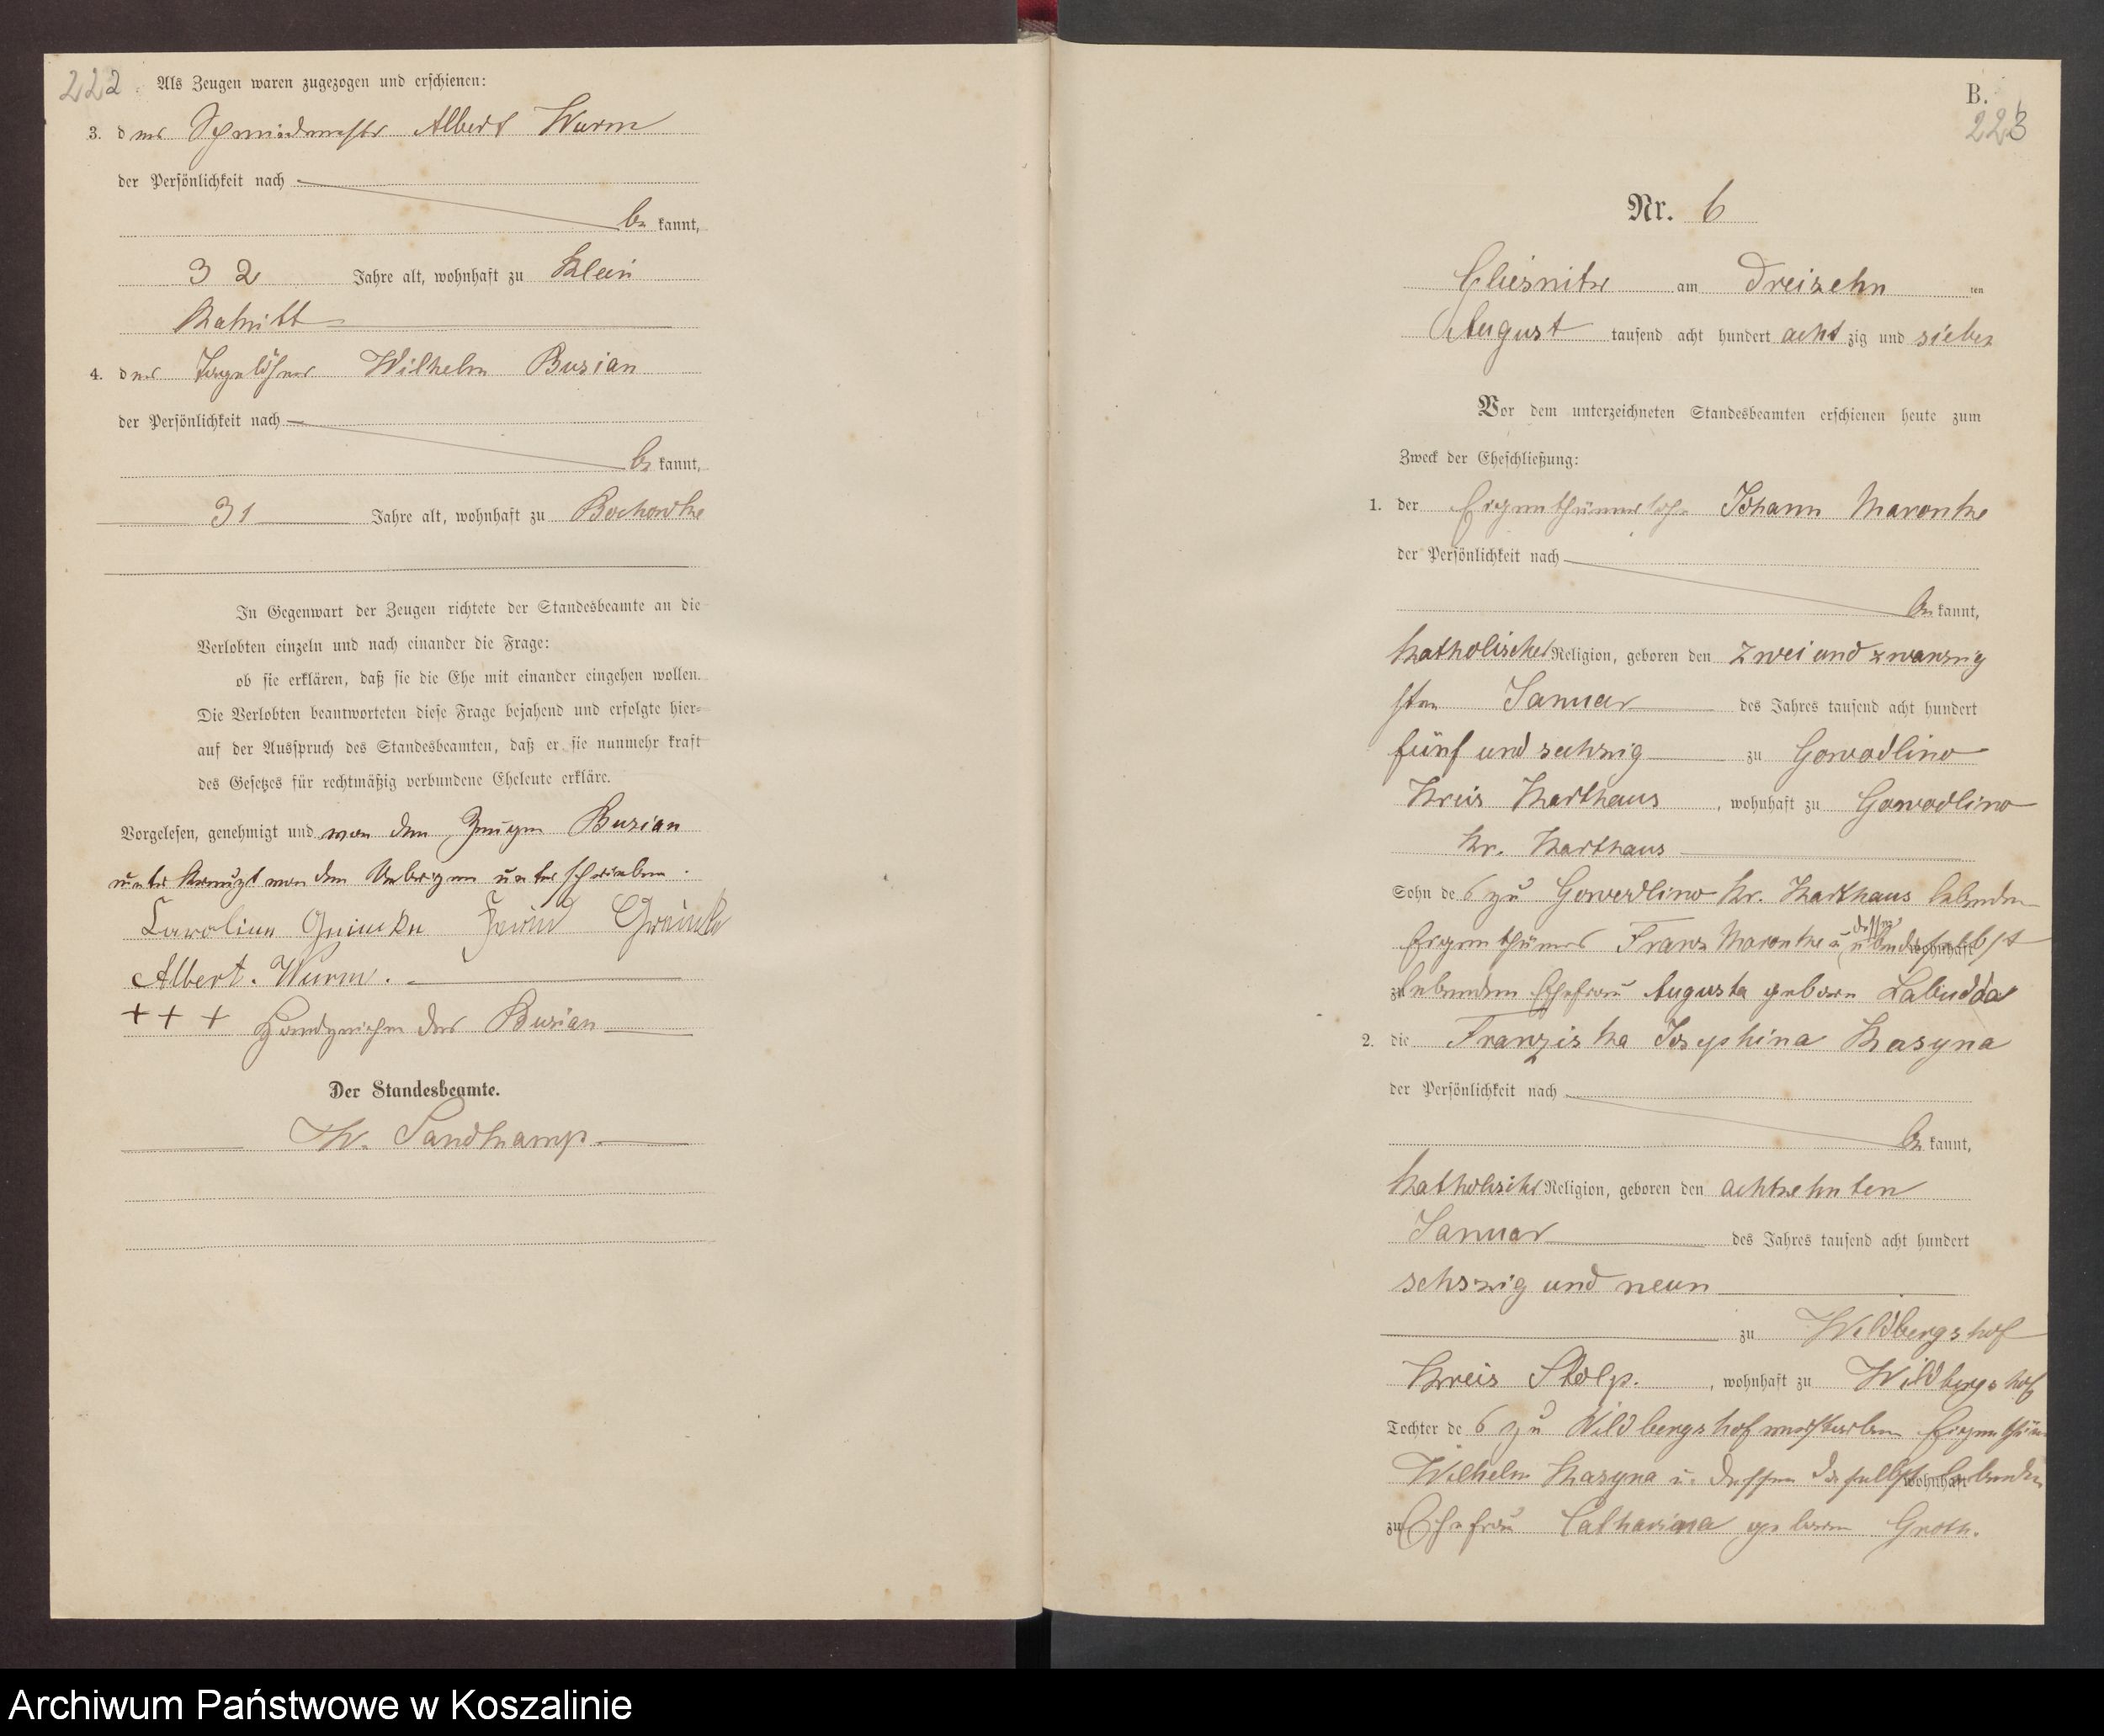 222. Als Zeugen waren zugezogen und erschienen:
3. der Schmiedemeister Albert Wurm
der Persönlichkeit nach
be kannt,
32 Jahre alt, wohnhaft zu Klein
Massnitt
4. der Tagelöhner Wilhelm Busian
der Persönlichkeit nach
be kannt,
31 Jahre alt, wohnhaft zu Bochowke
In Gegenwart der Zeugen richtete der Standesbeamte an die
Verlobten einzeln und nach einander die Frage:
ob sie erklären, daß sie die Ehe mit einander eingehen wollen.
Die Verlobten beantworteten diese Frage bejahend und erfolgte hier-
auf der Ausspruch des Standesbeamten, daß er sie nunmehr kraft
des Gesetzes für rechtmäßig verbundene Eheleute erkläre.
Vorgelesen, genehmigt und von dem Zeugen Busian
unterkreuzt von den Uebrigen unterschrieben.
Caroline
Albert. Wurm.
+++ Handzeichen des Busian
Der Standesbeamte.
Th. Sandkamp
B.
223
Nr. 6
Gliesnitz am dreizehn ten
August tausend acht hundert acht zig und sieben
Vor dem unterzeichneten Standesbeamten erschienen heute zum
Zweck der Eheschließung:
1. der Eigenthümersohn Johann Maronke
der Persönlichkeit nach
be kannt,
katholischer Religion, geboren den zwei und zwanzig
sten Januar des Jahres tausend acht hundert
fünf und sechzig zu Gowodlino
Kreis Karthaus, wohnhaft zu Gowodlino
Kr. Karthaus
Sohn des zu Gowodlino Kr. Karthaus lebenden
Eigenthümers Franz Maronke u. dessen daselbst wohnhaft
zu lebenden Ehefrau Augusta geboren Labudda
2. die Franziska Josephina Kasyna
der Persönlichkeit nach
be kannt,
katholischer Religion, geboren den achtzehnten
Januar des Jahres tausend acht hundert
sechszig und neun
zu Wildbergshof
Kreis Stolp., wohnhaft zu Wildbergshof
Tochter des zu Wildbergshof verstorbenen Eigenthüm
Wilhelm Kasyna u. dessen daselbst wohnhaft lebenden
zu Ehefrau Catharina geboren Groth.
Archiwum Państwowe w Koszalinie